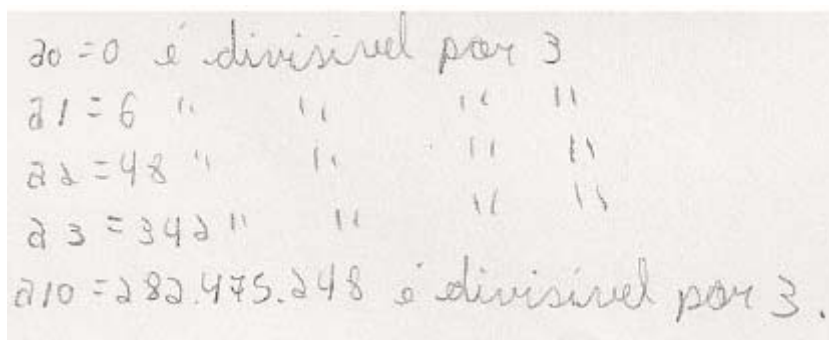 a0 = 0 é divisível por 3
a1 = 6 " " " "
a2 = 48 " " " "
a3 = 342 " " " "
a10 = 282.475.248 é divisível por 3.